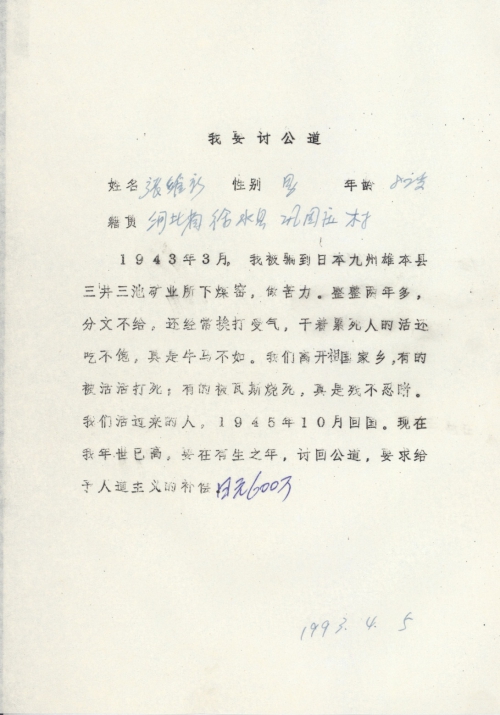 我要讨公道
姓名 張维新 性别 男 年龄
籍贯 河北省徐水县 固庄村
1943年3月,我被骗到日本九州雄本县
三井三池矿业所下煤窑,做苦力。整整两年多,
分文不给,还经常挨打受气,干着累死人的活还
吃不饱,真是牛马不如。我们离开祖国家乡,有的
被活活打死;有的被瓦斯烧死,真是残不忍睹。
我们活过来的人,1945年10月回国。现在
我年世已高,要在有生之年,讨回公道,要求给
于人道主义的补偿日元600万
1993.4.5